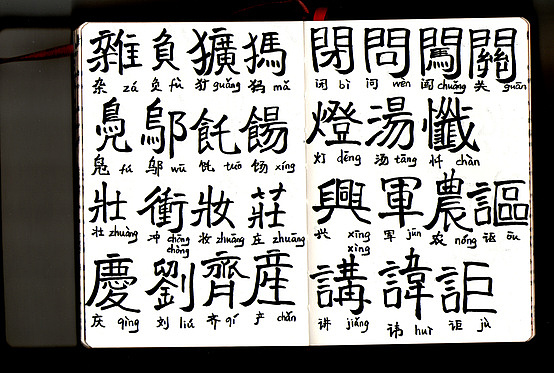 雜 負 獷 獁
杂 zá 负 fù 犷 guǎng 犸 mǎ
鳧 鄔 飥 餳
凫 fú 邬 wū 饦 tuō 饧 xíng
壯 衝 妝 莊
壮 zhuàng 冲 chōng 妆 zhuāng 庄 zhuāng
chòng
慶 劉 齊 産
庆 qìng 刘 liú 齐 qí 产 chǎn
閉 問 闖 關
闭 bì 问 wèn 闯 chuǎng 关 guān
燈 湯 懺
灯 dēng 汤 tāng 忏 chàn
興 軍 農 謳
兴 xīng 军 jūn 农 nóng 讴 ōu
xìng
講 諱 詎
讲 jiǎng 讳 huì 讵 jù